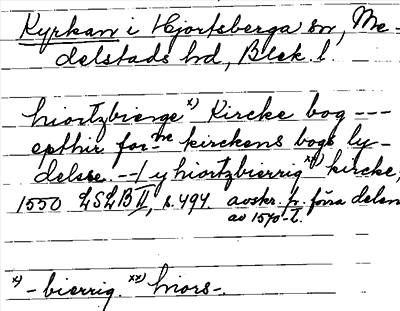 Kyrkan i Hjortsberga sn, Me-
delstads hd, Blek. l.
hiortzbierge x) Kircke bog ---
epthir for-ne kirckens bogs ly-
delsse. --- y hiortzbierrig xx) kircke,
1550 LSLB II, s. 494 avskr. fr. förra delen
av 1570-t.
x) -bierrig. xx) hiors-.